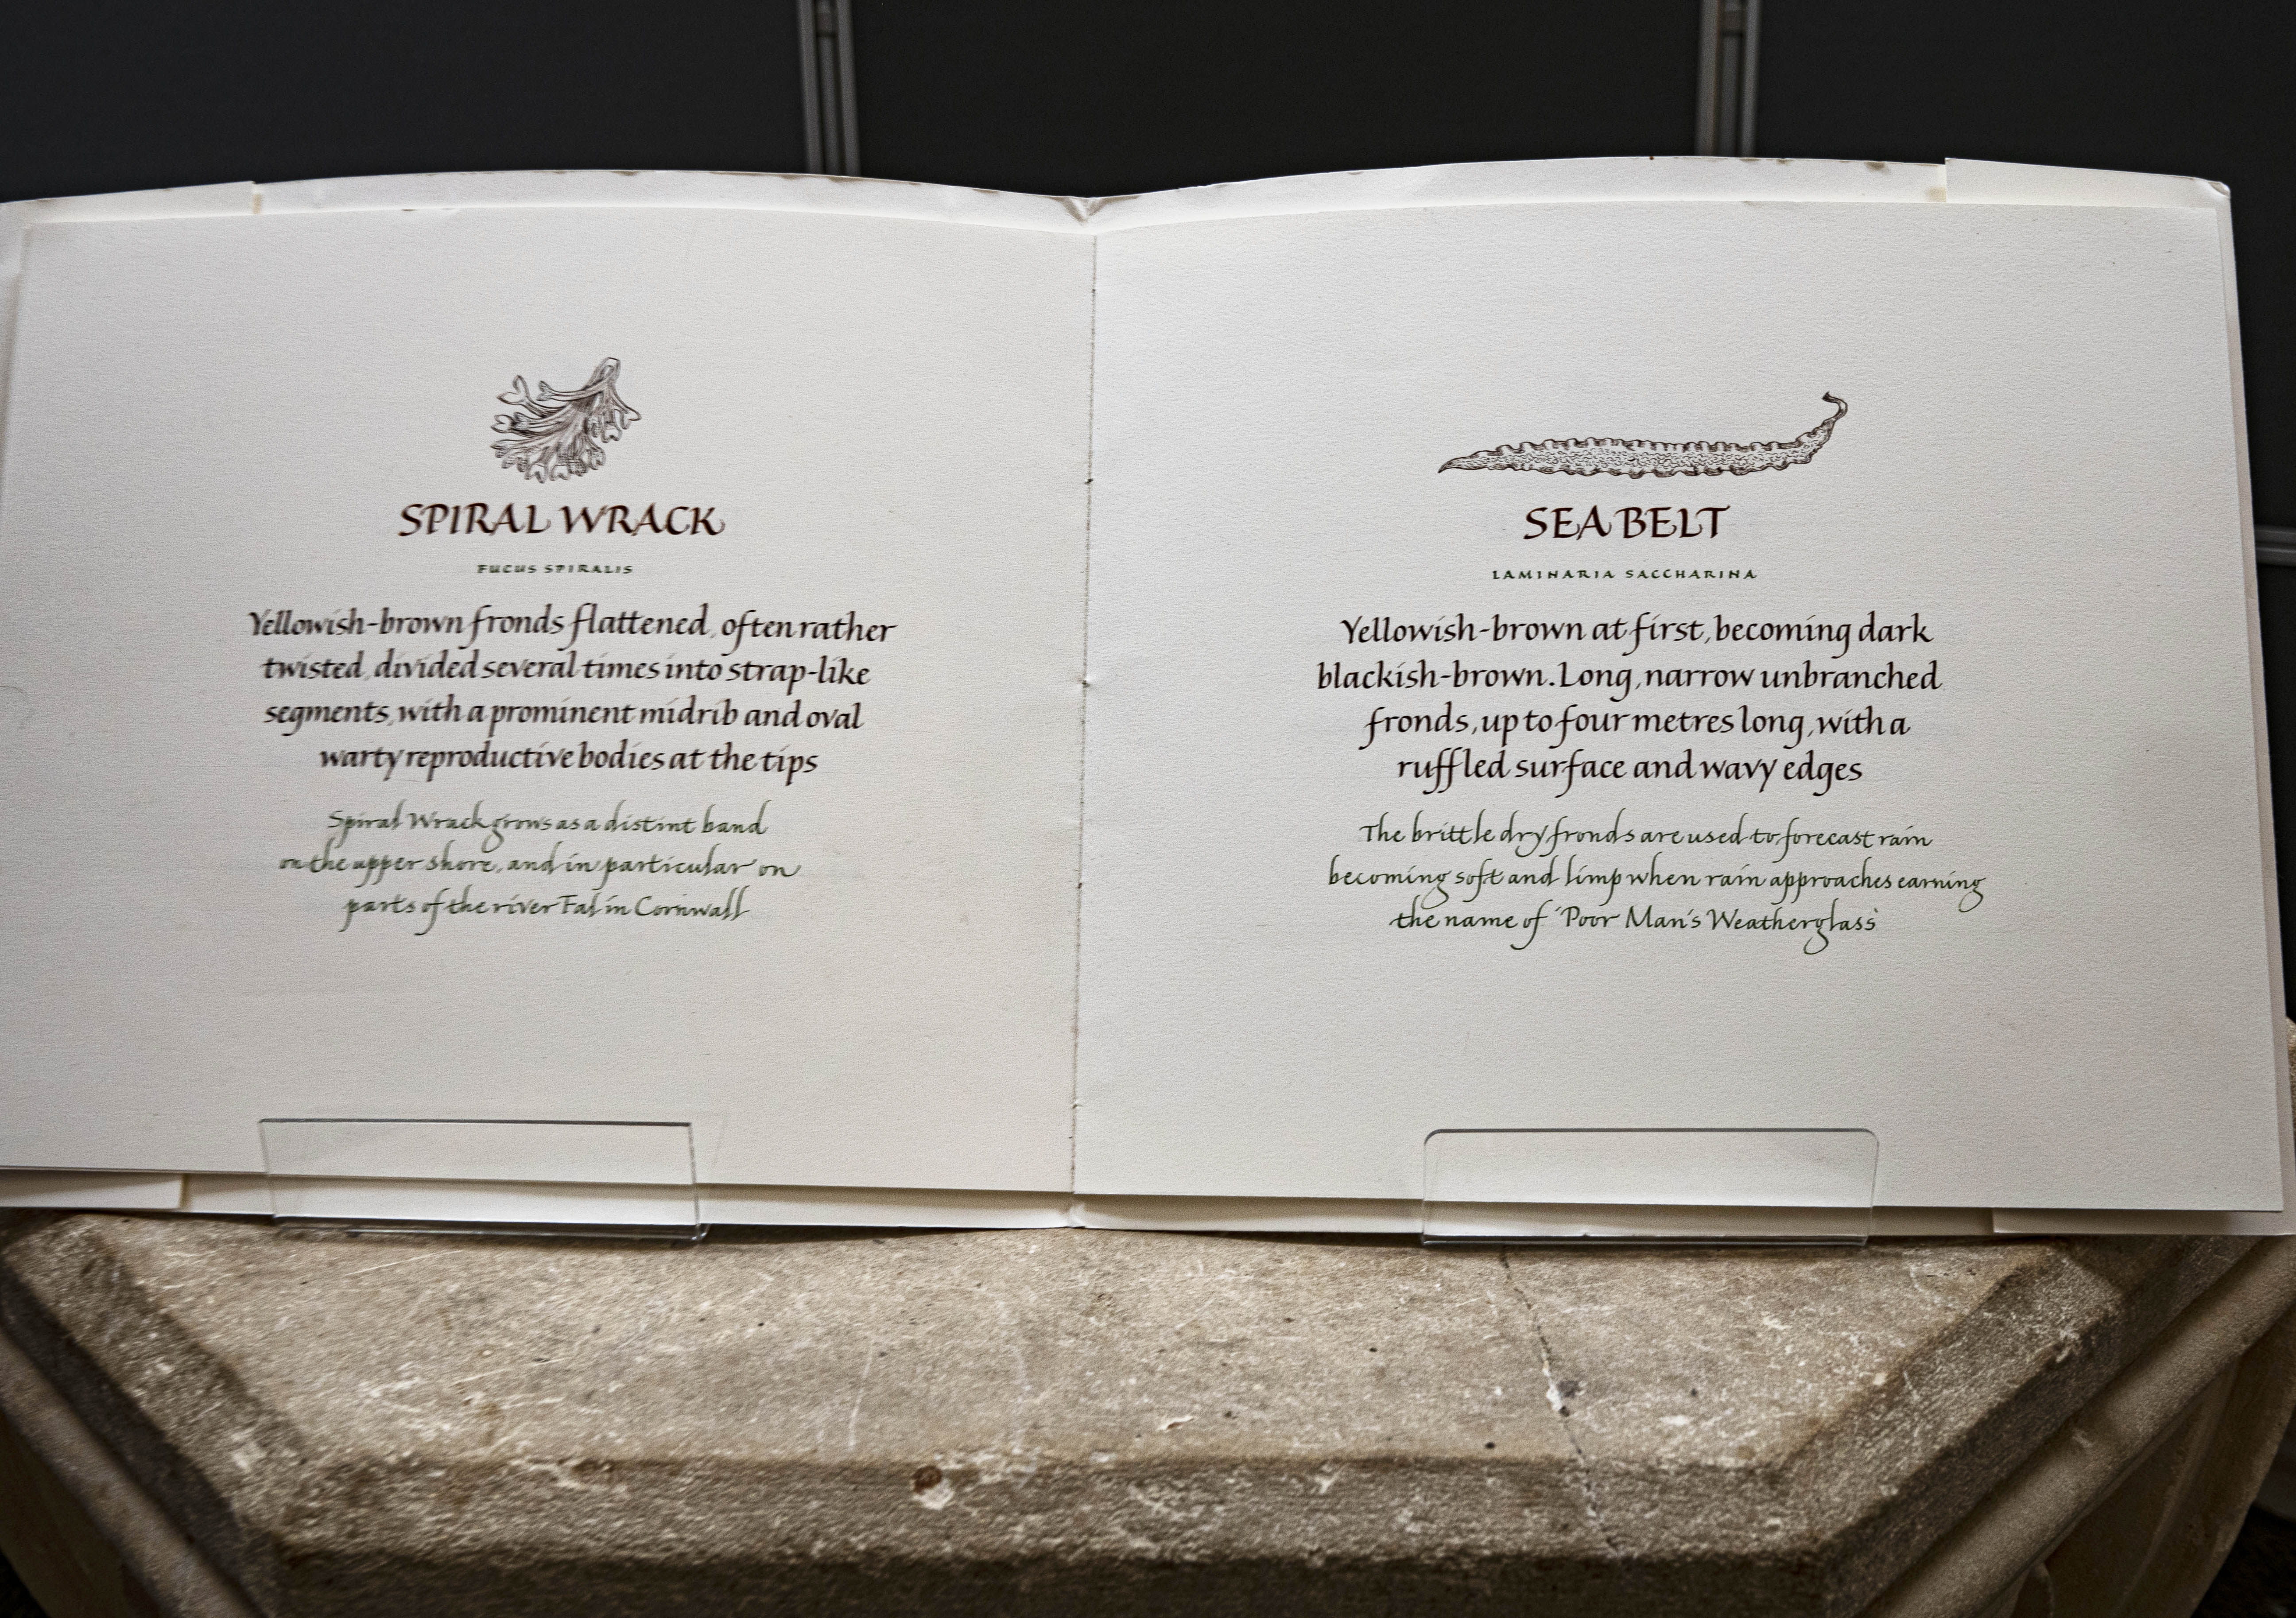 SPIRAL WRACK
FUCUS SPIRALIS
Yellowish-brown fronds flattened, often rather
twisted, divided several times into strap-like
segments, with a prominent midrib and oval
warty reproductive bodies at the tips
Spiral Wrack grows as a distint band
on the upper shore, and in particular on
parts of the river Fal in Cornwall
SEA BELT
LAMINARIA SACCHARINA
Yellowish-brown at first, becoming dark
blackish-brown. Long, narrow unbranched
fronds, up to four metres long, with a
ruffled surface and wavy edges
The brittle dry fronds are used to forecast rain
becoming soft and limp when rain approaches earning
the name of 'Poor Man's Weatherglass'